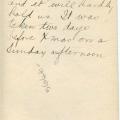 and it will hardly
hold us. It was
taken two days
before Xmas on a
Sunday afternoon